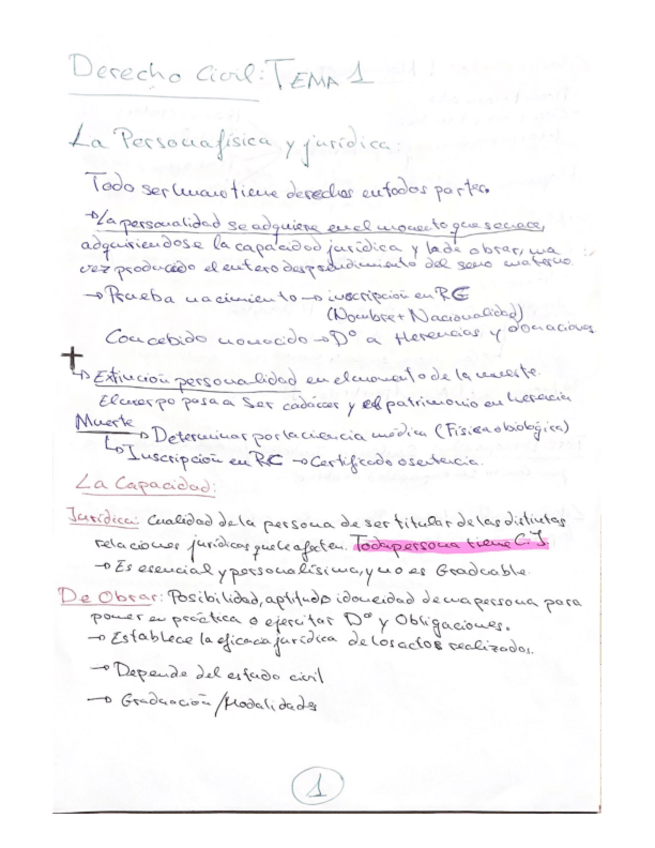 Derecho Civil: TEMA 1
La Persona física y jurídica:
Todo ser humano tiene derechos en todas partes.
→ La personalidad se adquiere en el momento que se nace,
adquiriendose la capacidad jurídica y la de obrar, una
vez producido el entero desprendimiento del seno materno
→ Prueba nacimiento → inscripción en RC
(Nombre + Nacionalidad)
Concebido no nacido → Dº a Herencias y donaciones
+
↳ Extinción personalidad en el momento de la muerte.
El cuerpo pasa a ser cádacer y el patrimonio en herencia
Muerte
→ Determinar por la ciencia médica (Física o biológica)
↳ Inscripción en RC → Certificado o sentencia.
La Capacidad:
Jurídica: Cualidad de la persona de ser titular de las distintas
relaciones jurídicas que le afecten. Toda persona tiene C.J.
→ Es esencial y personalísima, y no es Graduable
De Obrar: Posibilidad, aptitud o idoneidad de una persona para
poner en práctica o ejercitar Dº y Obligaciones.
→ Establece la eficacia jurídica de los actos realizados.
→ Depende del estado civil
→ Graduación/Modalidades
1